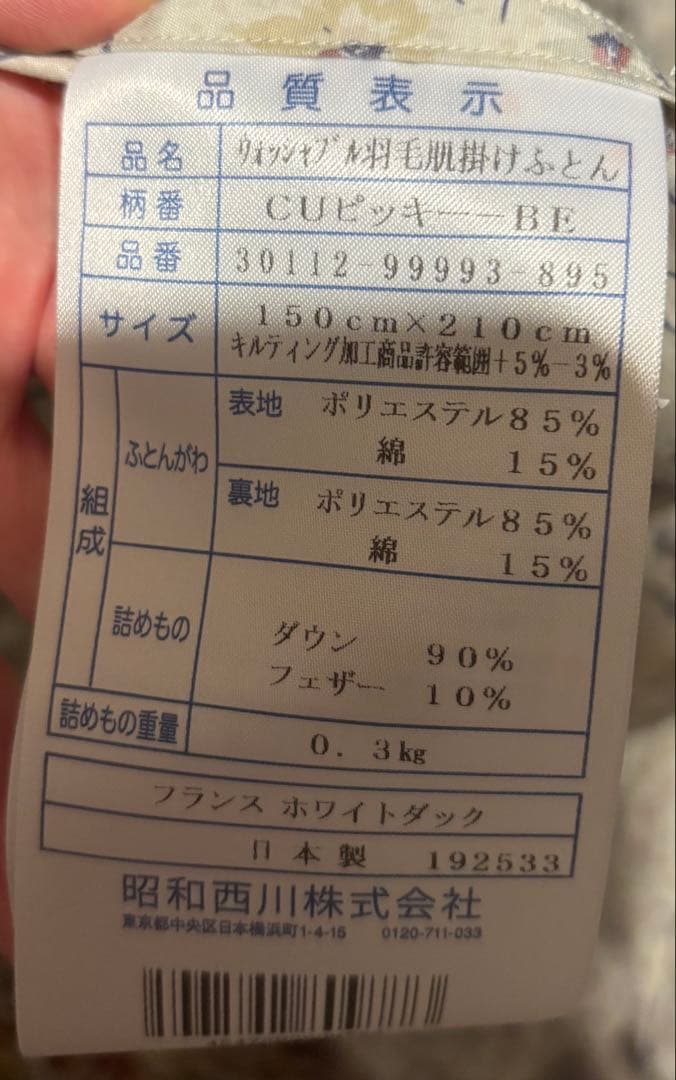 品質表示
品名 ウォッシャブル羽毛肌掛けふとん
柄番 CUピッキー－BE
品番 30112-99993-895
サイズ 150cm×210cm
キルティング加工商品許容範囲＋5%－3%
組成
ふとんがわ
表地 ポリエステル85%
綿 15%
裏地 ポリエステル85%
綿 15%
詰めもの
ダウン 90%
フェザー 10%
詰めもの重量 0.3kg
フランス ホワイトダック
日本製 192533
昭和西川株式会社
東京都中央区日本橋浜町1-4-15 0120-711-033